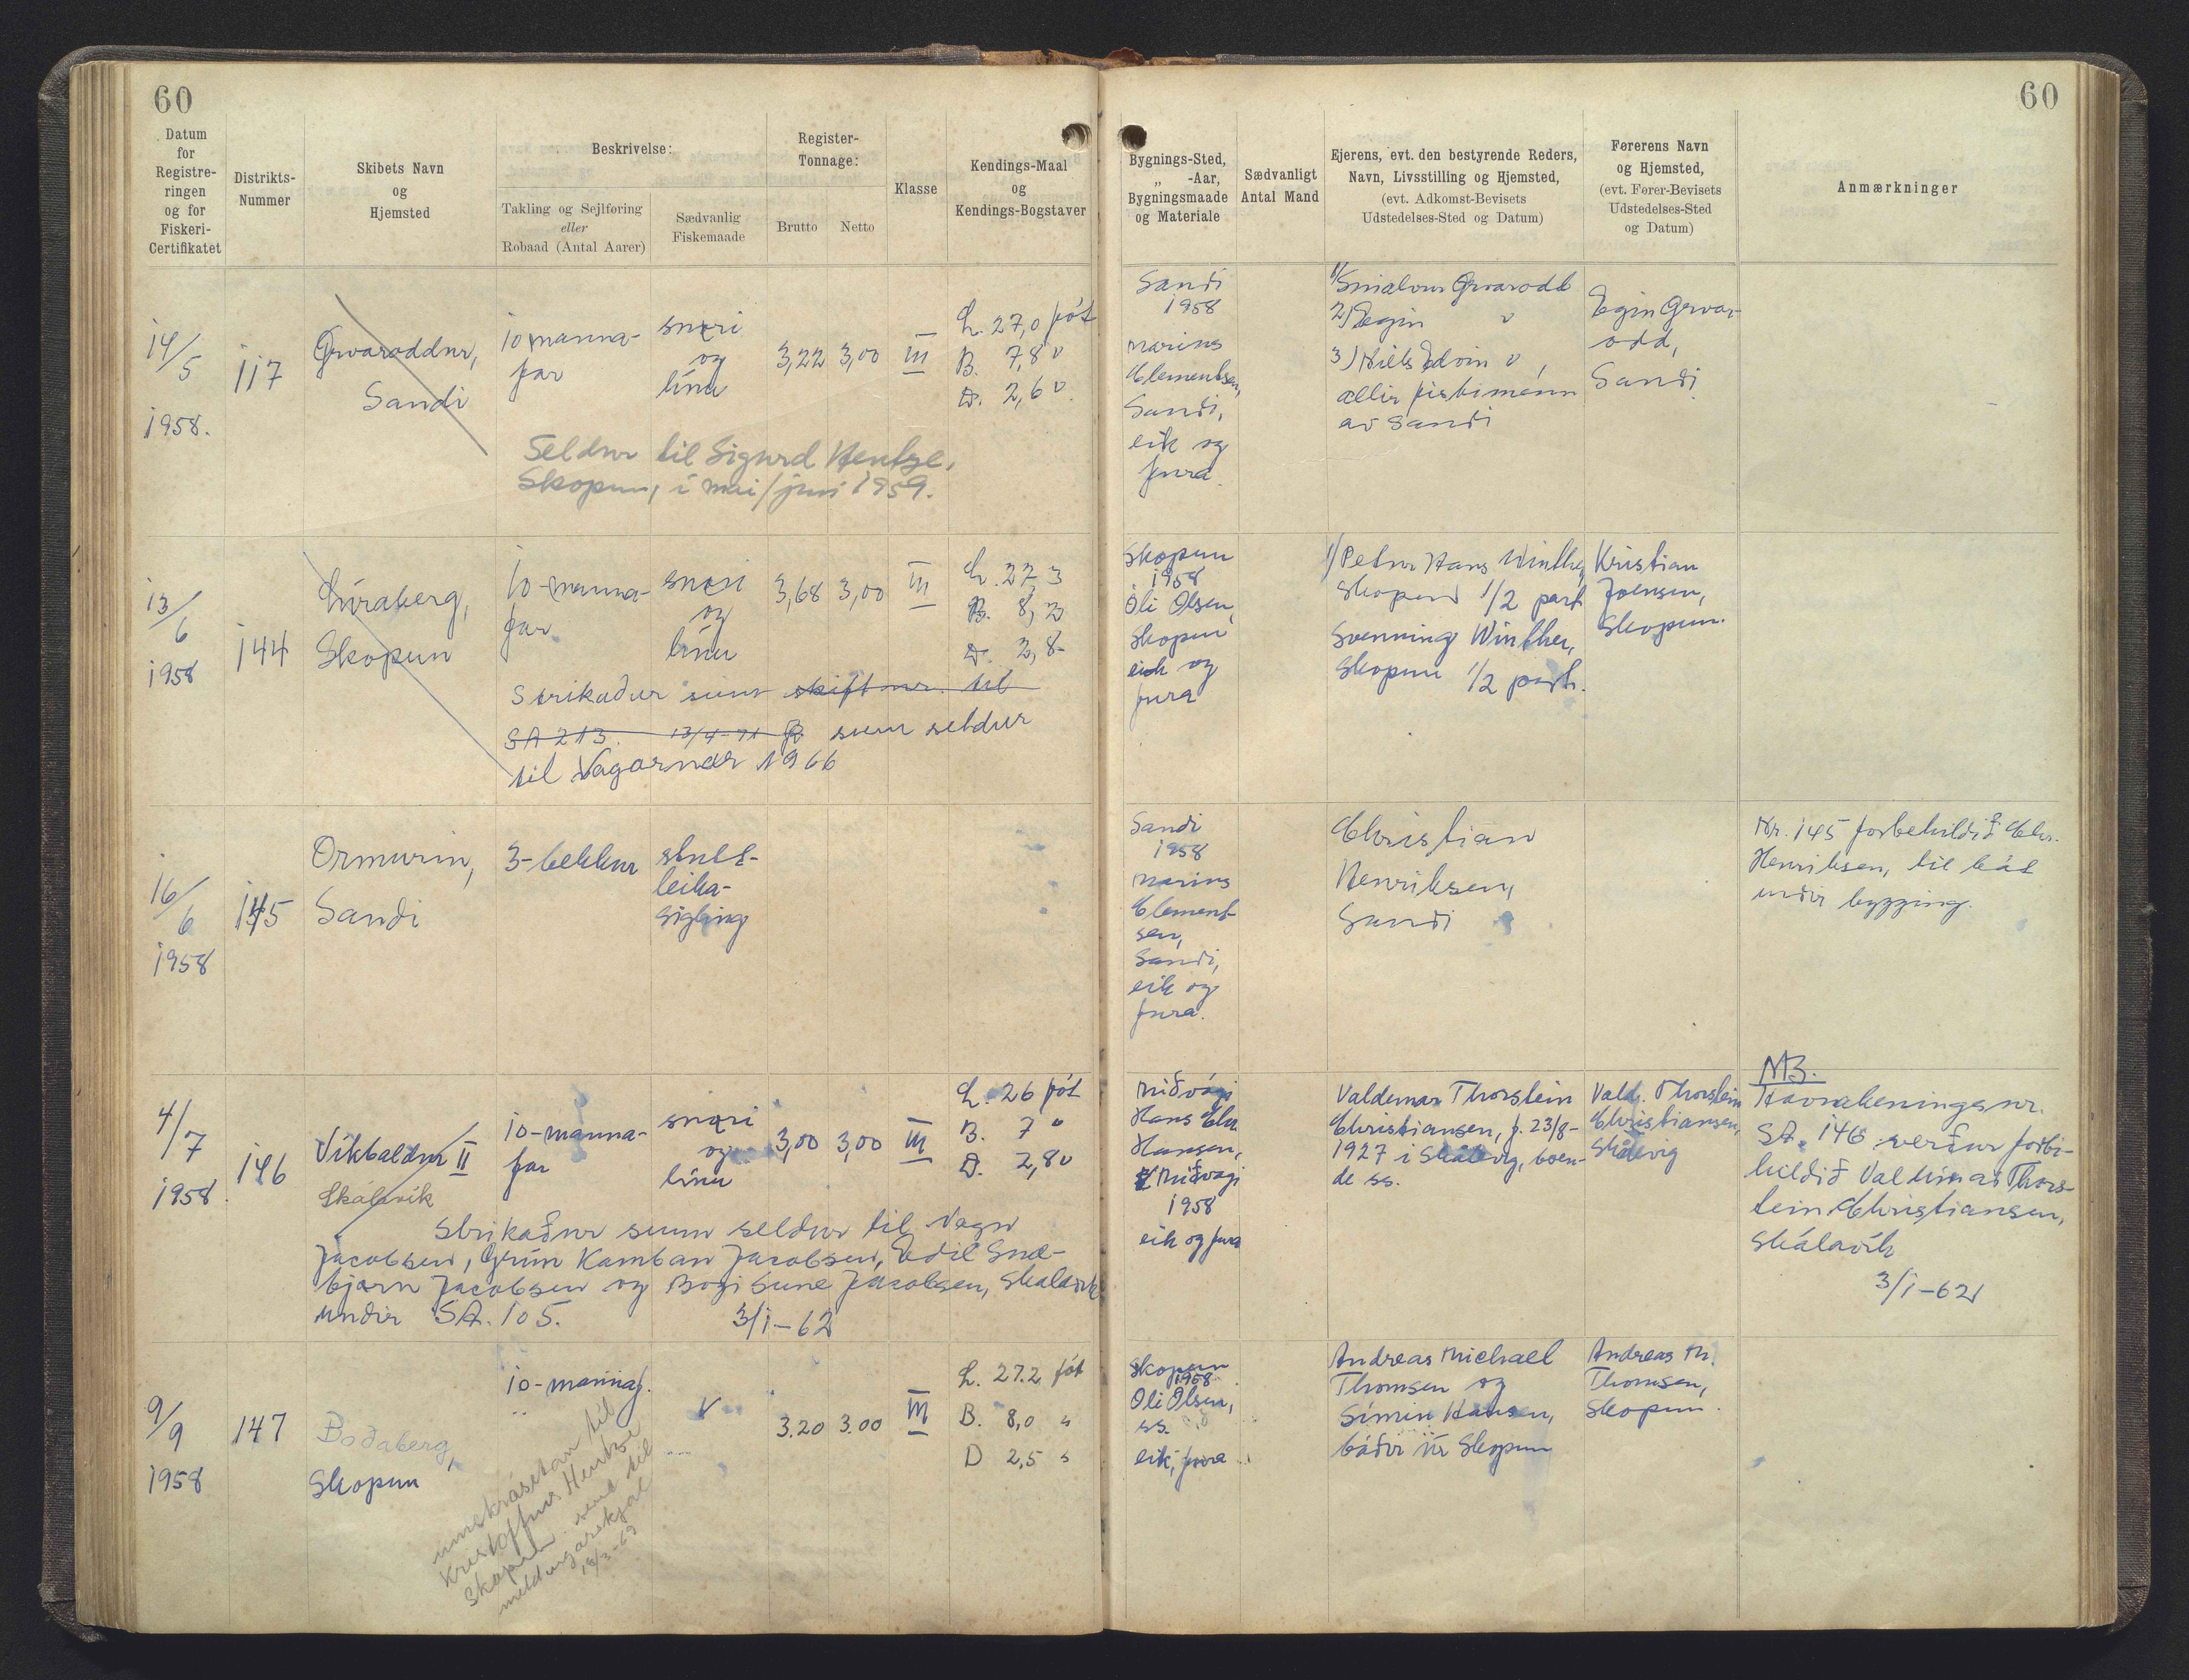 60
60
Datum
for
Registre-
ringen
og for
Fiskeri-
Certifikatet
Distrikts-
Nummer
Skibets Navn
og
Hjemsted
Beskrivelse:
Takling og Sejlføring
eller
Robaad (Antal Aarer)
Sædvanlig
Fiskemaade
Register-
Tonnage:
Brutto
Netto
Klasse
Kendings-Maal
og
Kendings-Bogstaver
Bygnings-Sted,
„ -Aar,
Bygningsmaade
og Materiale
Sædvanligt
Antal Mand
Ejerens, evt. den bestyrende Reders,
Navn, Livsstilling og Hjemsted,
(evt. Adkomst-Bevisets
Udstedelses-Sted og Datum)
Førerens Navn
og Hjemsted,
(evt. Fører-Bevisets
Udstedelses-Sted
og Datum)
Anmærkninger
14/5
1958.
117
Grvaroddur,
Sandi
10 manna-
far
snøri
og
línu
3,22
3,00
III
L. 27,0 fót
B. 7,8 "
D. 2,6 "
Seldur til Sigurd Hentze,
Skopun, í mai/juni 1959.
Sandi
1958
Marius
Clementsen,
Sandi,
eik og
fura.
2) Egin "
3) Niels Edvin ",
allir fiskimenn
av Sandi
Egin
Sandi
13/6
1958
144
Líraberg,
Skopun
10-manna-
far
snøri
og
línu
3,68
3,00
III
L. 27,3
B. 8,2
D. 2,8
Strikaður sum skift nr. til
SA 213. 13/4-71 sum seldur
til Vágarnar 1966
Skopun
1958
Óli Olsen,
Skopun
eik og
fura
1/ Petur Hans Winther,
Skopun 1/2 part
Svenning Winther,
Skopun 1/2 part.
Kristian
Joensen,
Skopun.
16/6
1958
145
Ormurin,
Sandi
3-bekkur
stutt-
leika-
sigling
Sandi
1958
Marius
Clement-
sen,
Sandi,
eik og
fura.
Christian
Henriksen,
Sandi
Nr. 145 forbehildið Chr.
Henriksen, til bát
undir bygging.
4/7
1958.
146
Víkbaldur II
Skálavík
10-manna-
far
snøri
og
línu
3,00
3,00
III
L. 26 fót
B. 7 "
D. 2,8 "
Strikaður sum seldur til Vagn
Jacobsen, Grím Kamban Jacobsen, Edil Snæ-
bjørn Jacobsen og Bogi Sune Jacobsen, Skálavík
undir SA. 105. 3/1-62
Miðvági
Hans Chr.
Hansen,
Miðvági
1958
eik og fura
Valdemar Thorstein
Christiansen, f. 23/8-
1927 i Skålevig, boen-
de ss.
Vald. Thorstein
Christiansen,
Skålevig
NB.
Havnakenningsnr.
SA. 146 verður forbi-
hildið Valdimar Thors-
tein Christiansen,
Skálavík
3/1-62
9/9
1958
147
Borðaberg,
Skopun
10-mannaf.
"
3.20
3.00
III
L. 27.2 fót
B. 8,0 "
D 2,5 "
umskrásetan til
Kristoffur Hentze
Skopun. sent til
meldingarskjal
Skopun
1958
Óli Olsen,
ss.
eik, fura
Andreas Michael
Thomsen og
Símin Hansen,
báðir úr Skopun
Andreas M.
Thomsen,
Skopun.